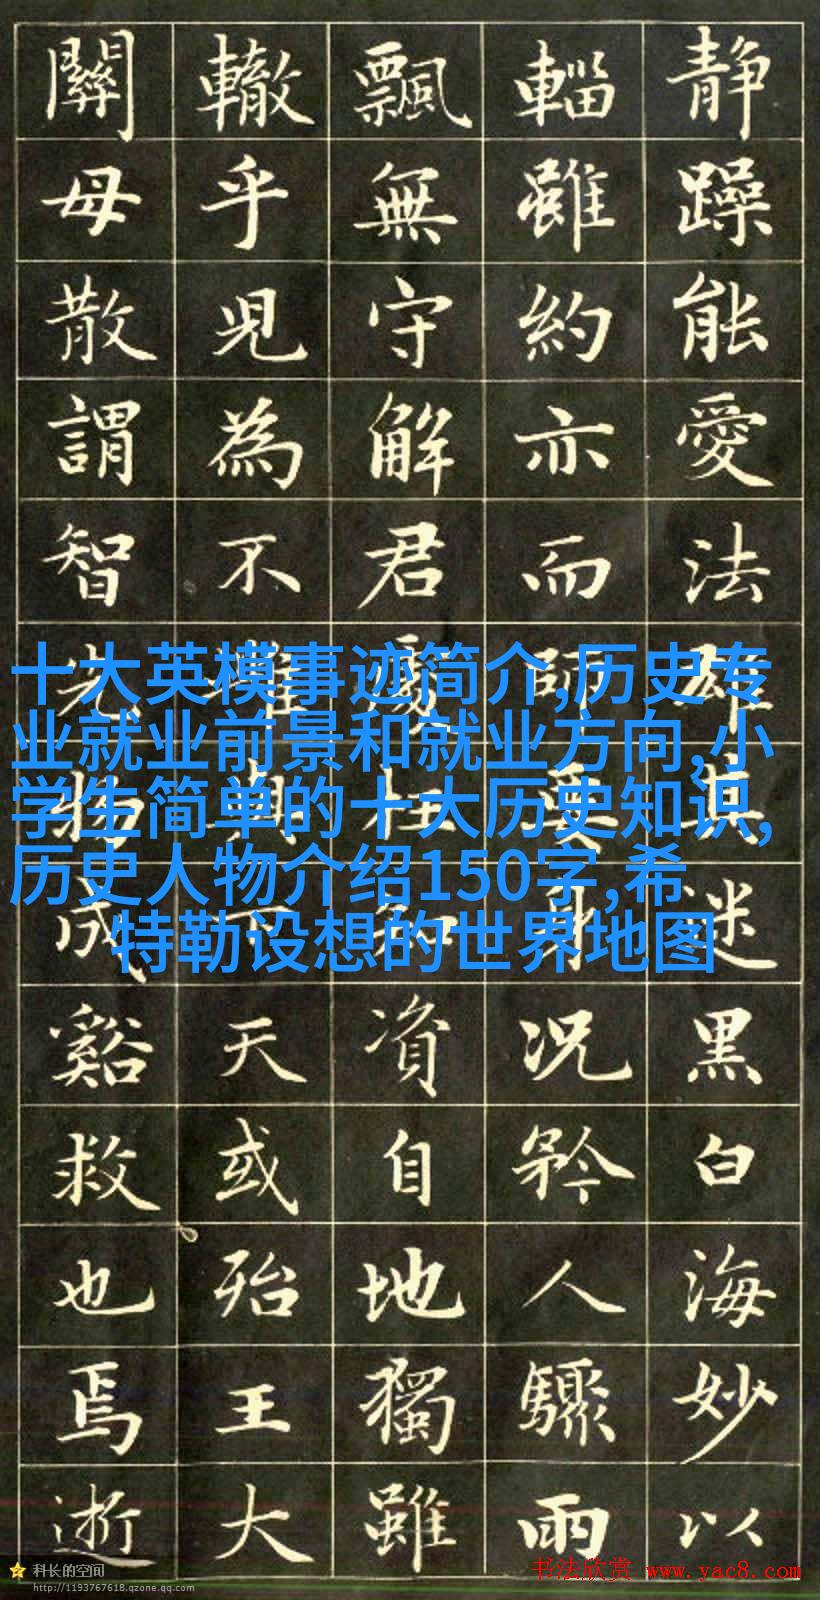 静躁能愛法雄其迷黑白海妙以
輜雖約亦而師身况矜人驟雨
飄無守解君處枉知資自地獨雖
轍乎見為不耀真天或殆王大
關毋散謂智光物成谿救也焉逝
十大英模事迹简介,历史专
业就业前景和就业方向,小
学生简单的十大历史知识,
历史人物介绍150字,希
特勒设想的世界地图
科长的空间
http://1193767618.qzone.qq.com
书法欣赏 www.yac8.com